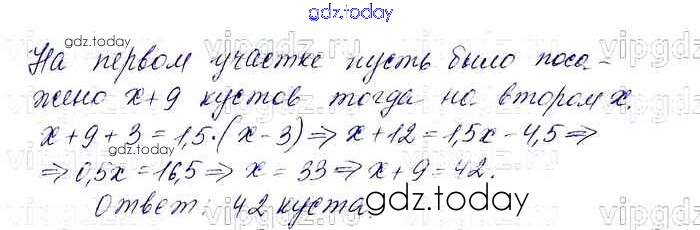 gdz.today
На первом участке пусть было поса-
жено x+9 кустов тогда на втором x.
x+9+3=1,5·(x-3)⇒x+12=1,5x-4,5⇒
⇒0,5x=16,5⇒x=33⇒x+9=42.
Ответ: 42 куста.
gdz.today